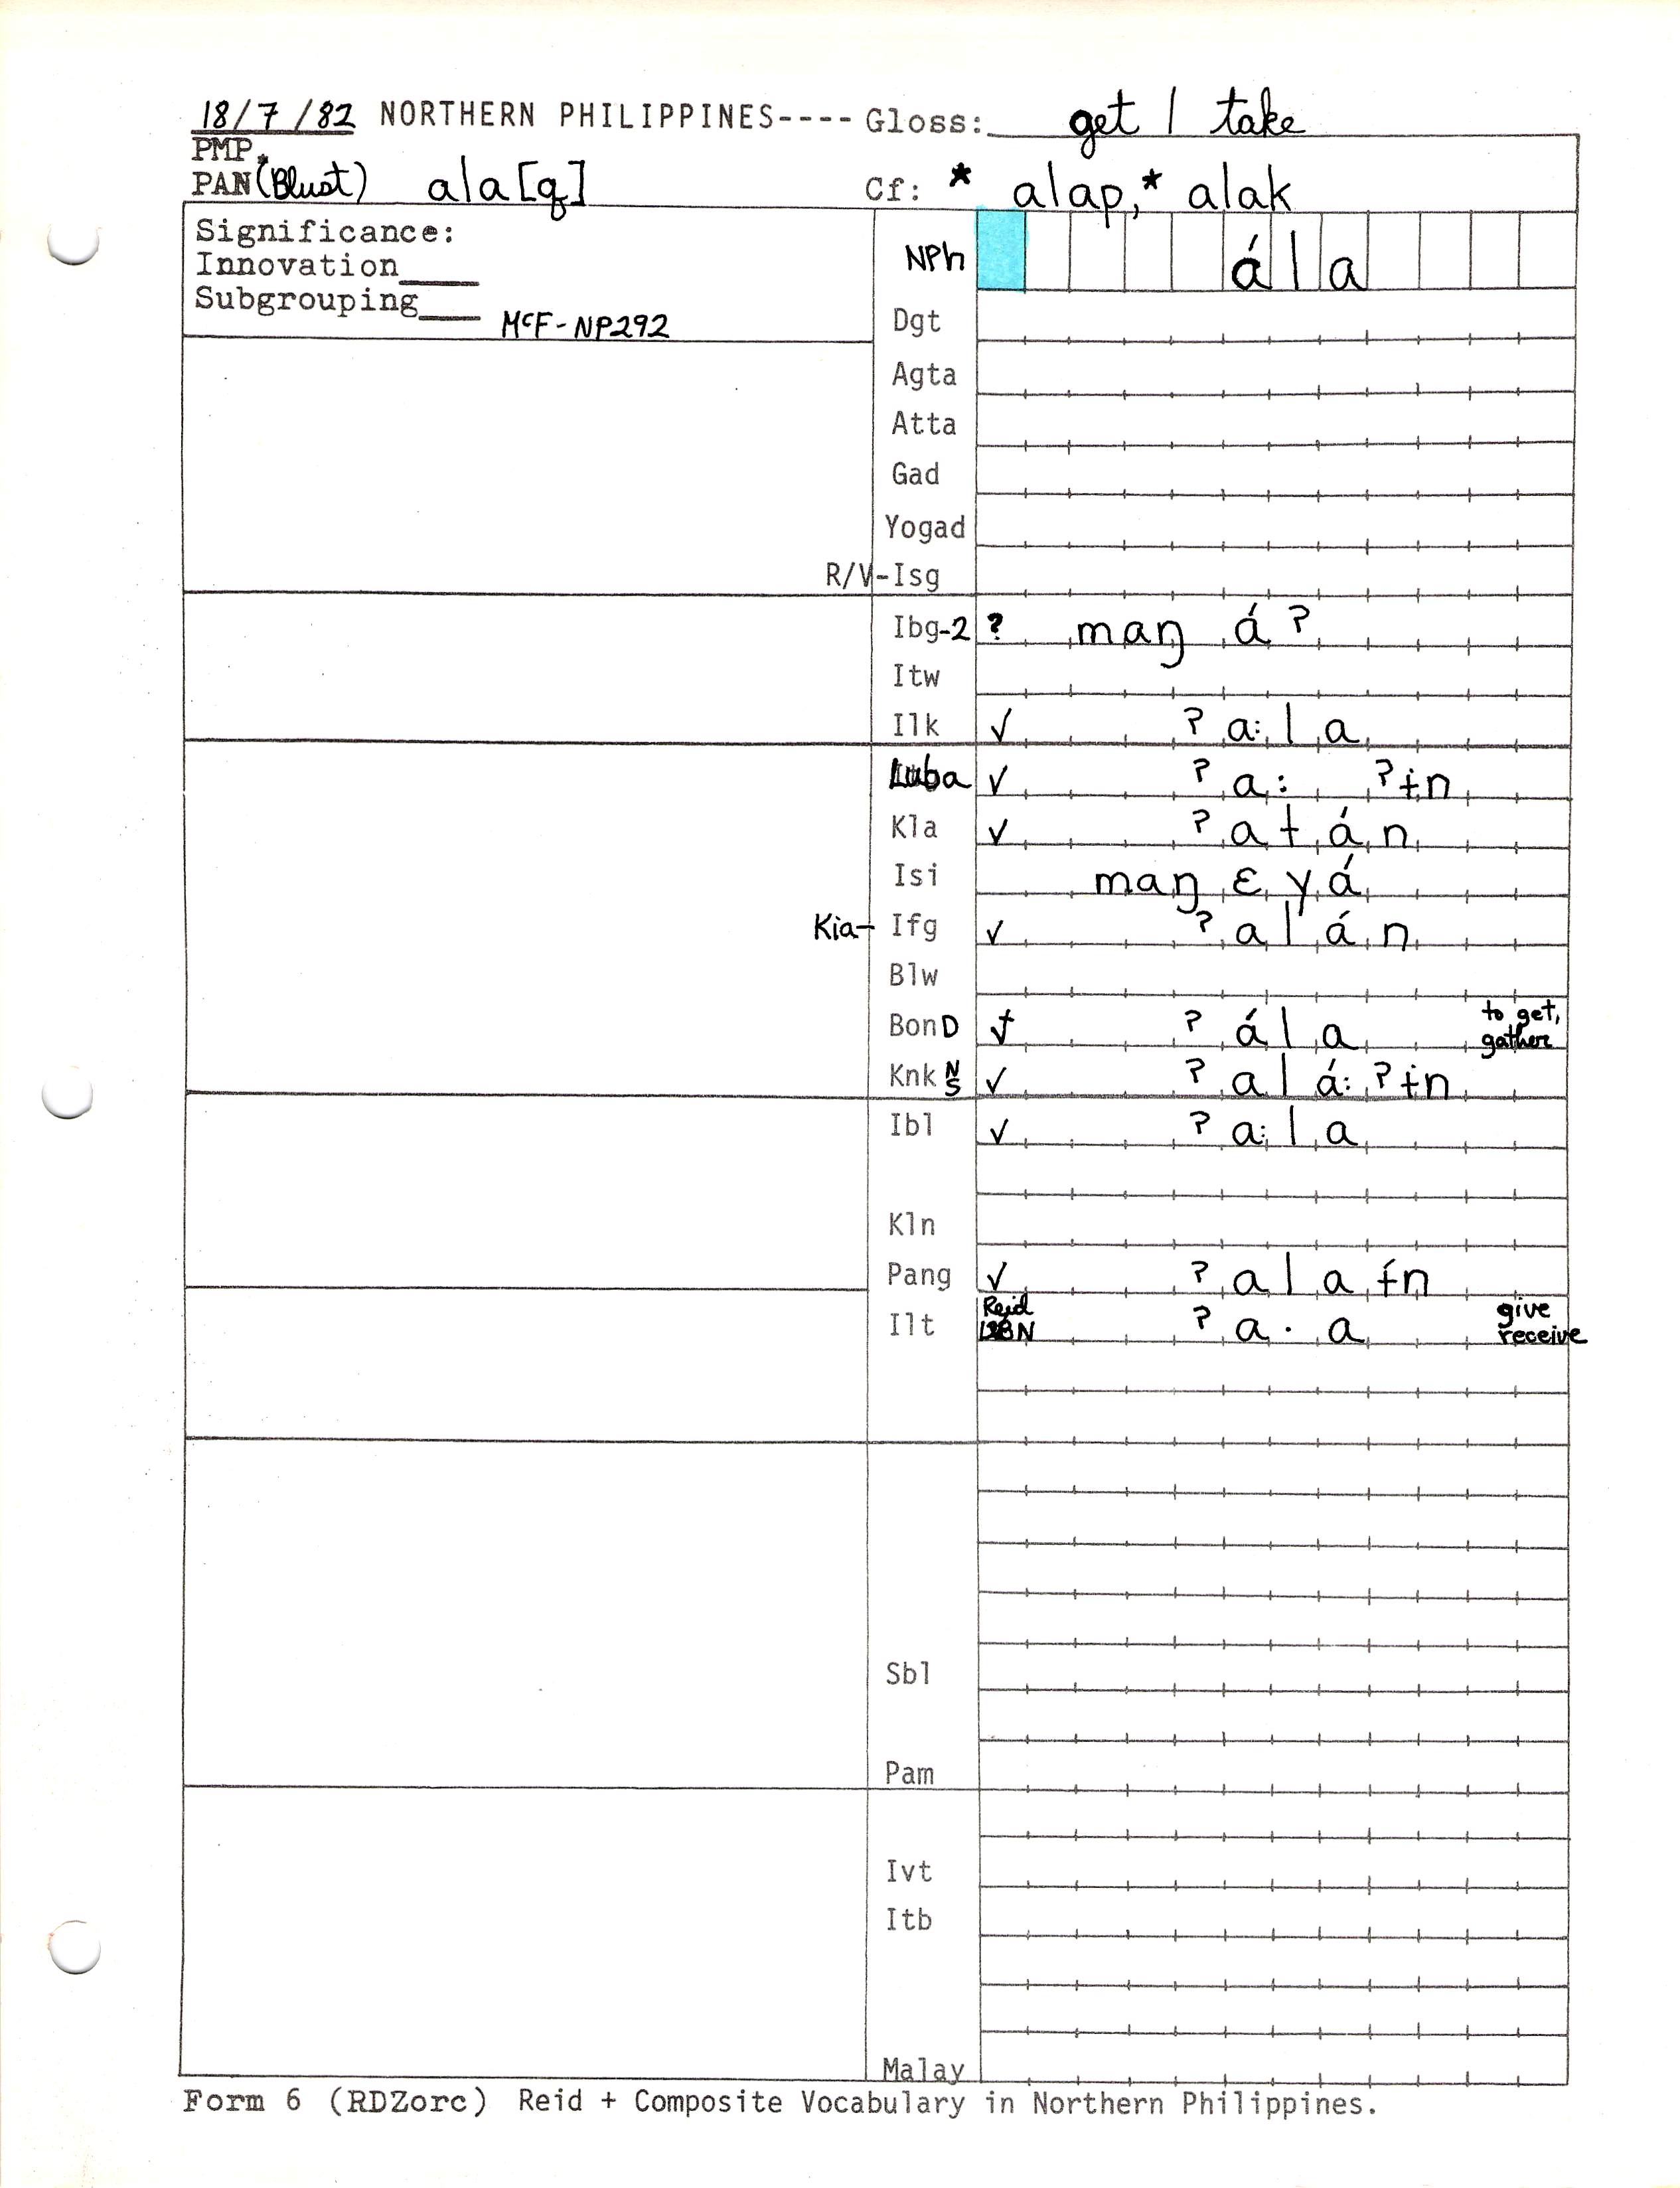 18/7/82 NORTHERN PHILIPPINES---- Gloss: get / take
PMP
PAN (Blust) ala[q] Cf: * alap, * alak
Significance:
Innovation____
Subgrouping____ McF-NP292
NPh ála
Dgt
Agta
Atta
Gad
Yogad
R/V-Isg
Ibg-2 ? maŋ áʔ
Itw
Ilk ✓ ʔa:la
Luba ✓ ʔa: ʔɨn
Kla ✓ ʔaɫán
Isi maŋ ɛyá
Kia- Ifg ✓ ʔalán
Blw
BonD ✓ ʔála to get, gather
Knk N S ✓ ʔalá:ʔɨn
Ibl ✓ ʔa:la
Kln
Pang ✓ ʔalaɨ́n
Ilt Reid ʔa·a give receive
Sbl
Pam
Ivt
Itb
Malay
Form 6 (RDZorc) Reid + Composite Vocabulary in Northern Philippines.